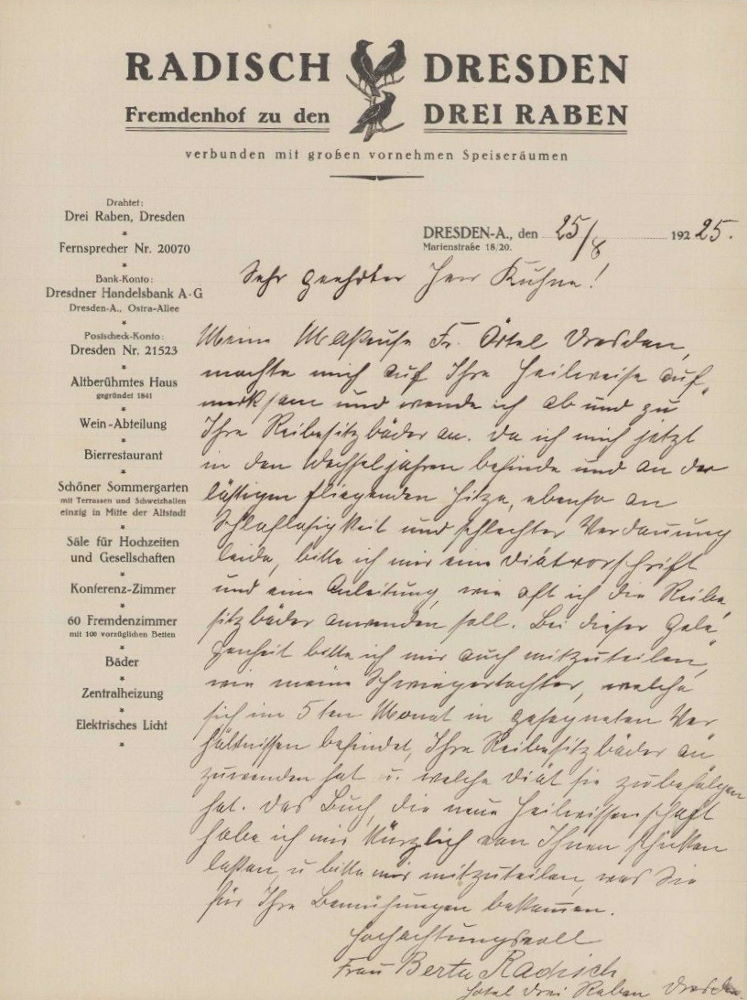 RADISCH DRESDEN
Fremdenhof zu den DREI RABEN
verbunden mit großen vornehmen Speiseräumen
Drahtet:
Drei Raben, Dresden
Fernsprecher Nr. 20070
Bank-Konto:
Dresdner Handelsbank A-G
Dresden-A., Ostra-Allee
Postscheck-Konto:
Dresden Nr. 21523
Altberühmtes Haus
gegründet 1841
Wein-Abteilung
Bierrestaurant
Schöner Sommergarten
mit Terrassen und Schweizhallen
einzig in Mitte der Altstadt
Säle für Hochzeiten
und Gesellschaften
Konferenz-Zimmer
60 Fremdenzimmer
mit 100 vorzüglichen Betten
Bäder
Zentralheizung
Elektrisches Licht
DRESDEN-A., den 25/8 192 25.
Marienstraße 18/20.
Sehr geehrter Herr Kuhne!
Meine Masseuse Fr. Örtel Dresden,
machte mich auf Ihre Heilweise auf-
merksam und wende ich ab und zu
Ihre Reibesitzbäder an. Da ich mich jetzt
in den Wechseljahren befinde und an der
lästigen fliegenden Hitze, ebenso an
Schlaflosigkeit und schlechter Verdauung
leide, bitte ich mir eine Diätvorschrift
und eine Anleitung, wie oft ich die Reibe-
sitzbäder anwenden soll. Bei dieser Gele-
genheit bitte ich mir auch mitzuteilen,
wie meine Schwiegertochter, welche
sich im 5ten Monat in gesegneten Ver-
hältnissen befindet, Ihre Reibesitzbäder an-
zuwenden hat u. welche Diät sie zu befolgen
hat. Das Buch, die neue Heilwissenschaft
habe ich mir kürzlich von Ihnen schicken
lassen, u bitte mir mitzuteilen, was Sie
für Ihre Bemühungen bekommen.
Hochachtungsvoll
Frau Berta Radisch
Hotel Drei Raben Dresden